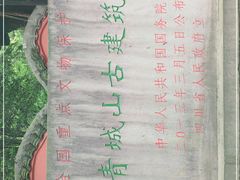 全国重点文物保护
青城山古建筑
中华人民共和国国务院
二〇一三年三月五日公布
四川省人民政府立